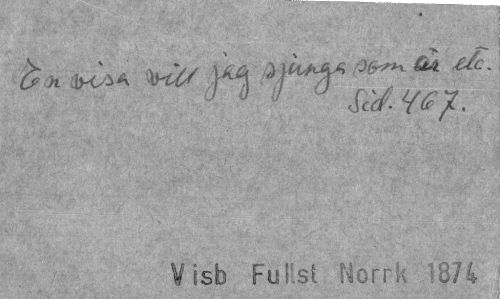 En visa vill jag sjunga som är etc.
Sid. 467.
Visb Fullst Norrk 1874